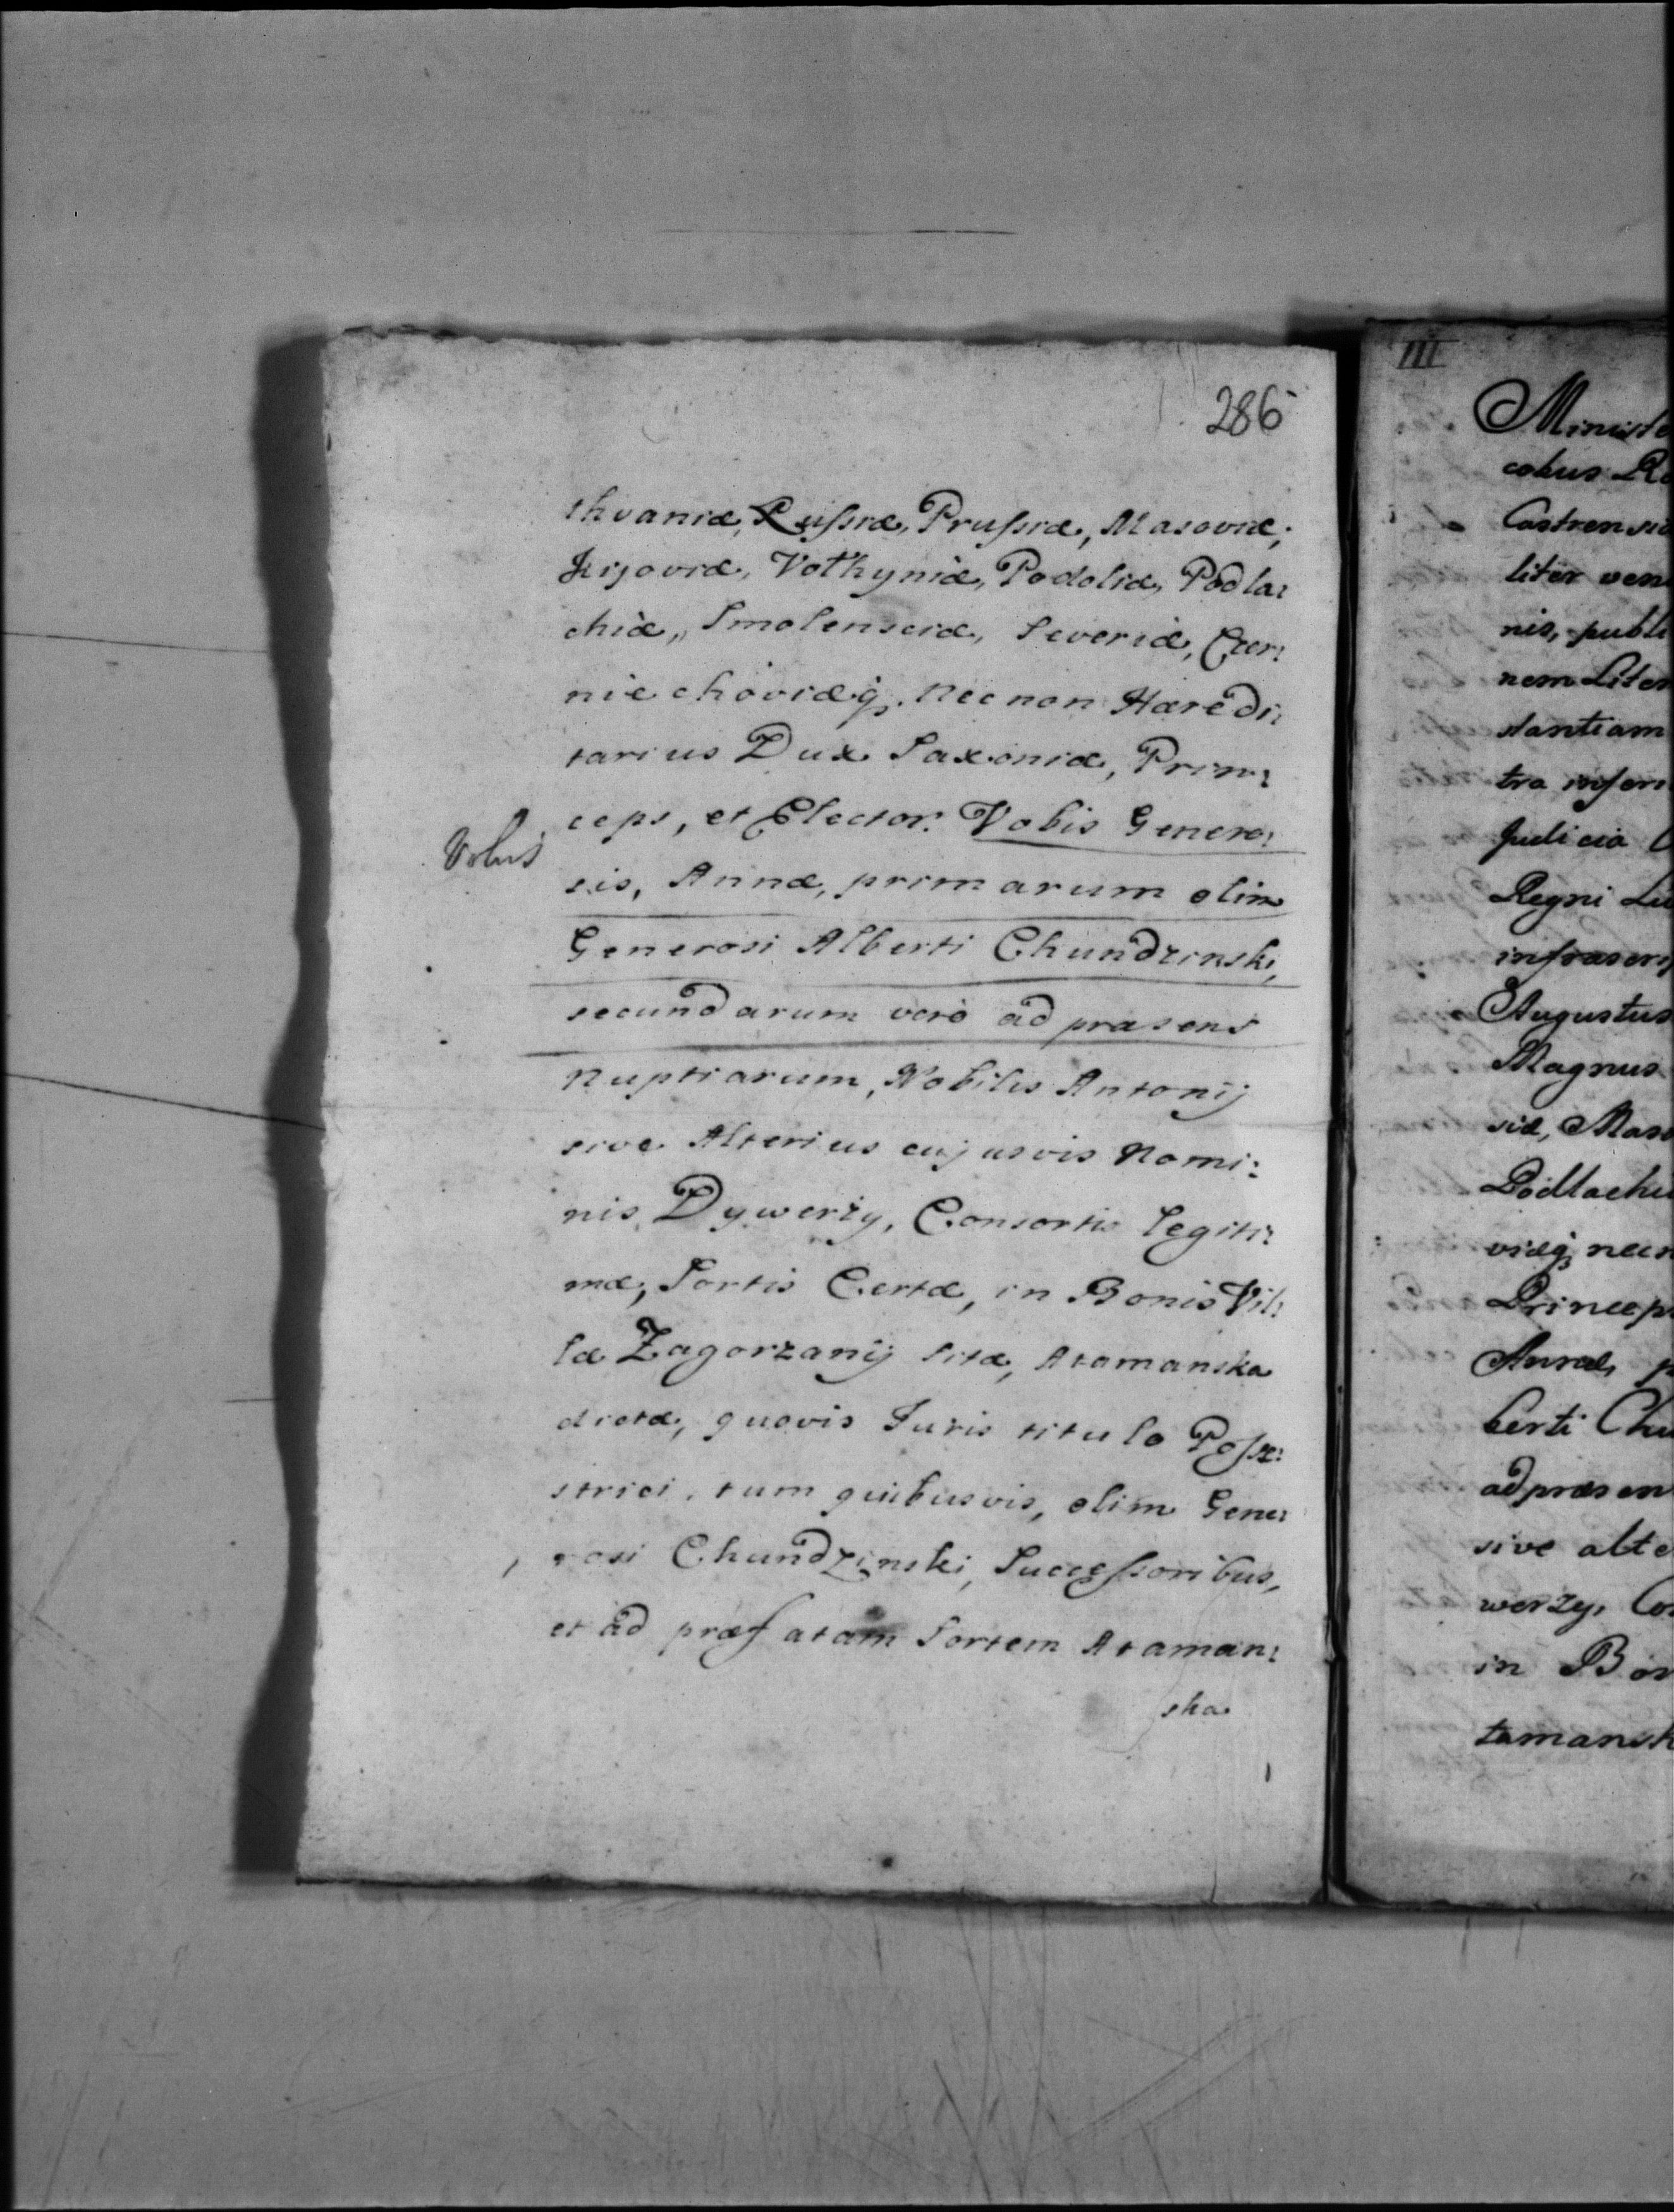 286
thvaniæ, Rußiæ, Prußiæ, Masoviæ,
Kijoviæ, Volhyniæ, Podoliæ, Podla:
chiæ, Smolensciæ, Severiæ, Czer:
niechoviæq, nec non Hæredi:
tarius Dux Saxoniæ, Prin:
ceps, et Elector. Vobis Genero:
Vobis
sis, Annæ, primarum olim
Generosi Alberti Chundzinski,
secundarum verò ad præsens
Nuptiarum, Nobilis Antonij
sive Alterius cujusvis Nomi:
nis Dywerży, Consortis legiti:
mæ, Sortis Certæ, in Bonis Vil:
læ Zagorzany sitæ, Atamanska
dictæ, quovis Juris titulo Poße:
strici, tum quibusvis, olim Gene:
rosi Chundzinski, Succeßoribus,
et ad præfatam Sortem Ataman:
ska
III
Ministe
cobus Ro
Castrensis
liter ven
nis, publi
nem Liter
stantiam
tra infer
Judicia C
Regni Lu
infrascri
Augustus
Magnus
siæ, Maso
Podlachi
viæq, nec n
Princeps
Annæ, p
berti Chu
ad præsen
sive alte
werży, Co
in Bon
tamansk